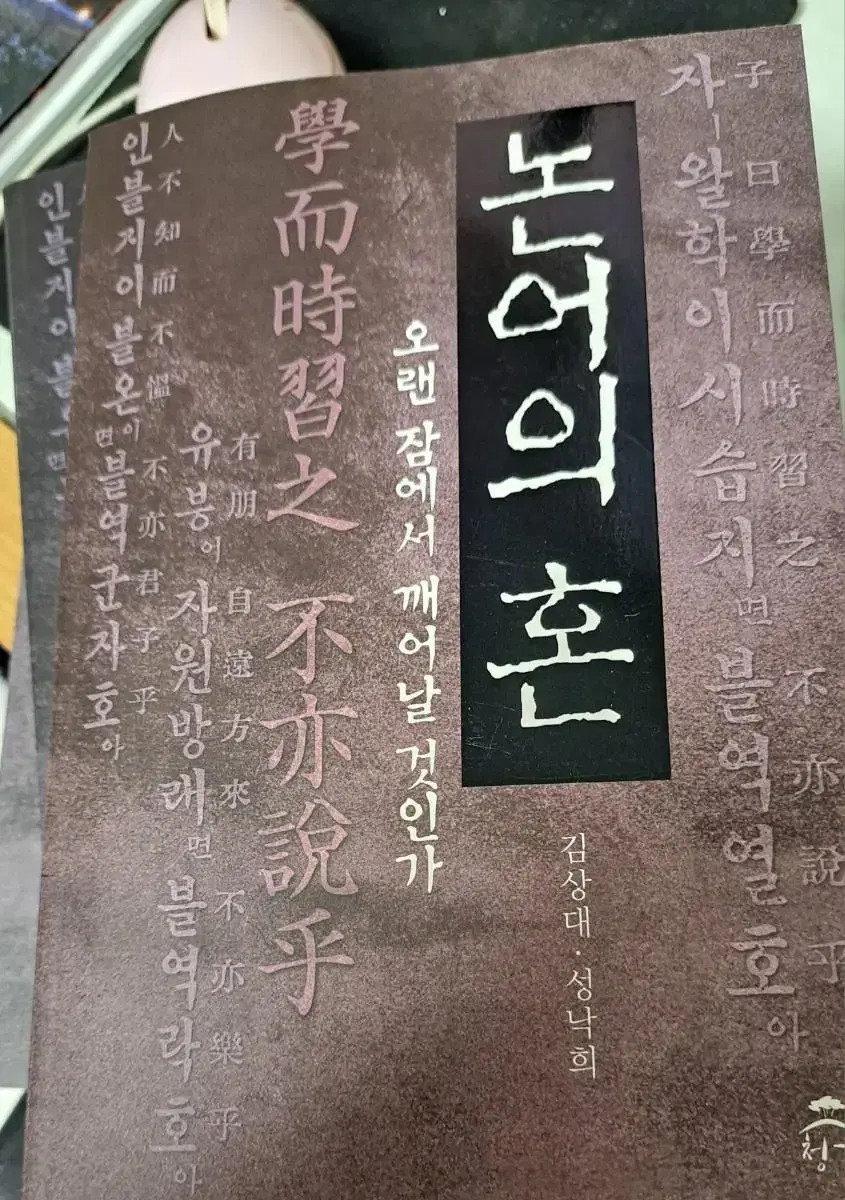 子曰學而時習之 不亦說乎
자ㅣ왈학이시습지면 블역열호아
논어의 혼
김상대 · 성낙희
오랜 잠에서 깨어날 것인가
學而時習之 不亦說乎
有朋 自遠方來 不亦樂乎
유붕이 자원방래면 블역락호아
人不知而不慍 不亦君子乎
인블지이블온이면블역군자호아
청
인블지이블